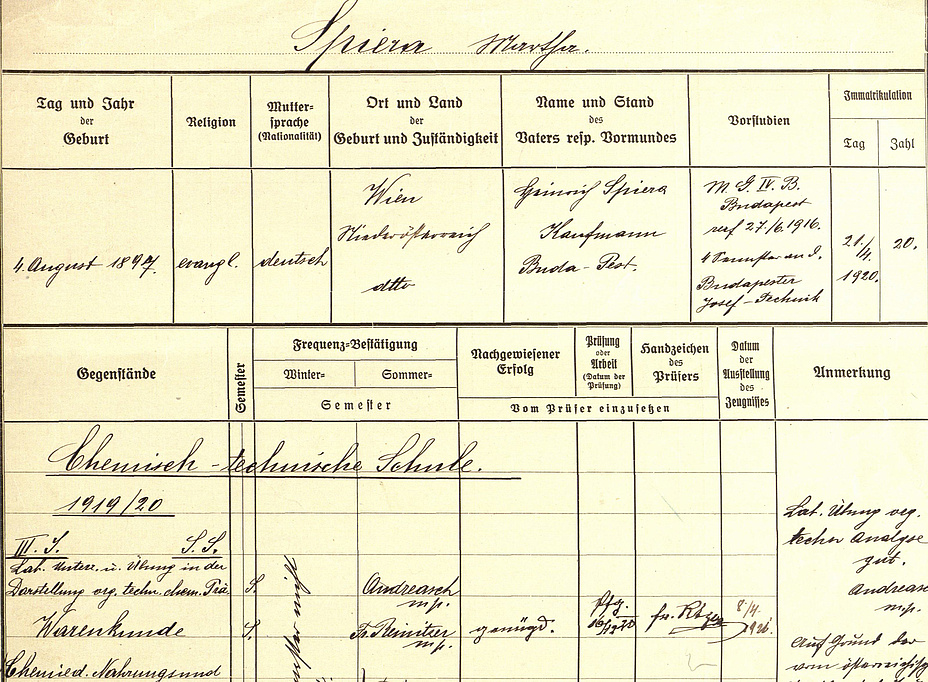 Spiera Martha.
Tag und Jahr
der
Geburt
Religion
Mutter-
sprache
(Nationalität)
Ort und Land
der
Geburt und Zuständigkeit
Name und Stand
des
Vaters resp. Vormundes
Vorstudien
Immatrikulation
Tag
Zahl
4. August 1897.
evangl.
deutsch
Wien
Niederösterreich
dtto
Heinrich Spiera
Kaufmann
Buda-Pest.
M. G. IV. B.
Budapest
27./6. 1916.
Budapester
Josef-Technik
21./4.
1920.
20.
Gegenstände
Semester
Frequenz-Bestätigung
Winter-
Sommer-
Semester
Nachgewiesener
Erfolg
Prüfung
oder
Arbeit
(Datum der
Prüfung)
Handzeichen
des
Prüfers
Vom Prüfer einzusetzen
Datum
der
Ausstellung
des
Zeugnisses
Anmerkung
Chemisch-technische Schule.
1919/20
III. J. S. S.
Lab. Unters. u. Übung in der
Darstellung org. techn. chem. Prä
S.
Andreasch
m/p.
Warenkunde
S.
Fr. Reinitzer
m/p.
genügd.
Pfg.
8/4.
Chemie d. Nahrungs und
Lab. Übung org.
techn Analyse
gut.
Andreasc
m/p.
Auf Grund der
vom österreichisch